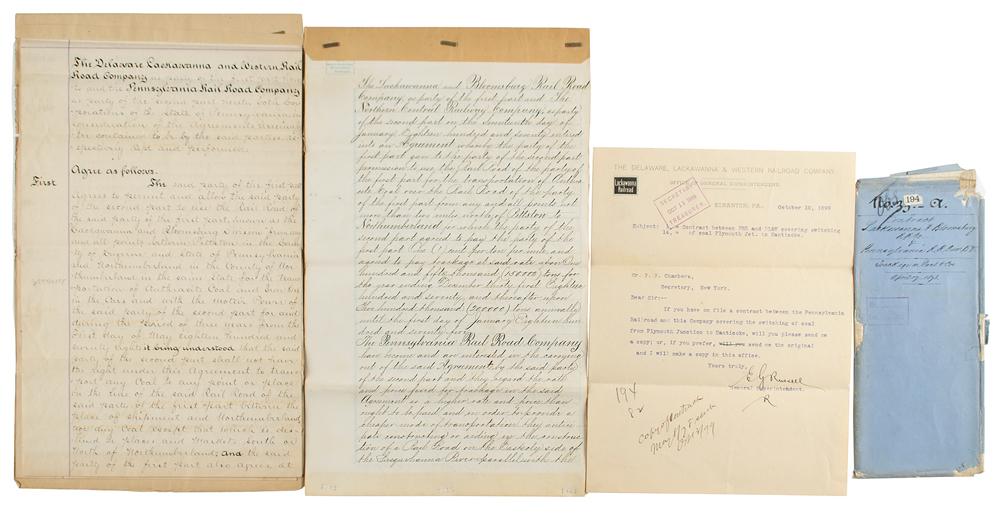 The Delaware Lackawanna and Western Rail
Road Company as party of the first part
to and the Pennsylvania Rail Road Company
as party of the second part
of the State of Pennsylvania in
consideration of the Agreements
contained to be by the said parties
kept and performed.
Agree as follows.
First The said party of the first part
Agrees to permit and allow the said party
of the second part to use the Rail Road of
the said party of the first part, known as the
Lackawanna and Bloomsburg
and all points between Pittston in the
of Luzerne and State of Pennsylvania
and Northumberland in the County of Nor-
thumberland in said State for the trans-
portation of Anthracite Coal and
in the Cars and with the Motive Power of
the said party of the second part for and
during the period of three years from the
first day of May eighteen hundred and
seventy eight it being understood that the said
party of the second part shall not have
the right under this Agreement to trans-
port any Coal to any point or place
on the line of the said Rail Road of the
said party of the first part between the
place of shipment and Northumberland
nor any Coal except that which is des-
tined to places and markets South or
North of Northumberland; and the said
party of the first part also agrees at
The Lackawanna and Bloomsburg Rail Road
Company, as party of the first part and The
Northern Central Railway Company, as party
of the second part on the nineteenth day of
January Eighteen hundred and seventy entered
into an Agreement whereby the party of the
first part gave to the party of the second part
permission to use the Rail Road of the party of
the first part for the transportation of
Coal over the Rail Road of the party
of the first part from any and all points not
more than two miles north of Pittston to
Northumberland for which the party of the
second part agreed to pay the party of the
first part
agreed to pay trackage at said rate upon One
hundred and fifty thousand (150000) tons for
the year ending December thirty first Eighteen
hundred and seventy, and thereafter upon
Two hundred thousand (200000) tons annually
until the first day of January Eighteen hun
dred and seventy
The Pennsylvania Rail Road Company
have become and are interested in the carrying
out of the said Agreement by the said party
of the second part and they regard the rate
and price fixed for trackage in the said
Agreement is a higher rate and price than
ought to be paid and in order to provide a
cheaper mode of transportation they antici-
pate constructing or aiding in the construc
tion of a Rail Road on the Easterly side of
the Susquehanna River parallel with the
THE DELAWARE, LACKAWANNA & WESTERN RAILROAD COMPANY.
Lackawanna
Railroad
OFFICE GENERAL SUPERINTENDENT.
SCRANTON, PA. October 10, 1899
SECRETARY
OCT 11 1899
TREASURER
Subject: Contract between PRR and DL&W covering switching
of coal Plymouth Jct. to Nanticoke.
Mr. F. F. Chambers,
Secretary, New York.
Dear Sir:--
If you have on file a contract between the Pennsylvania
Railroad and this Company covering the switching of coal
from Plymouth Junction to Nanticoke, will you please send me
a copy; or, if you prefer, will you send me the original
and I will make a copy in this office.
Yours truly,
E G Russell
General Superintendent.
R
194
82
194
Contract
Lackawanna & Bloomsburg
R.R. Co
&
Pennsylvania R.R.